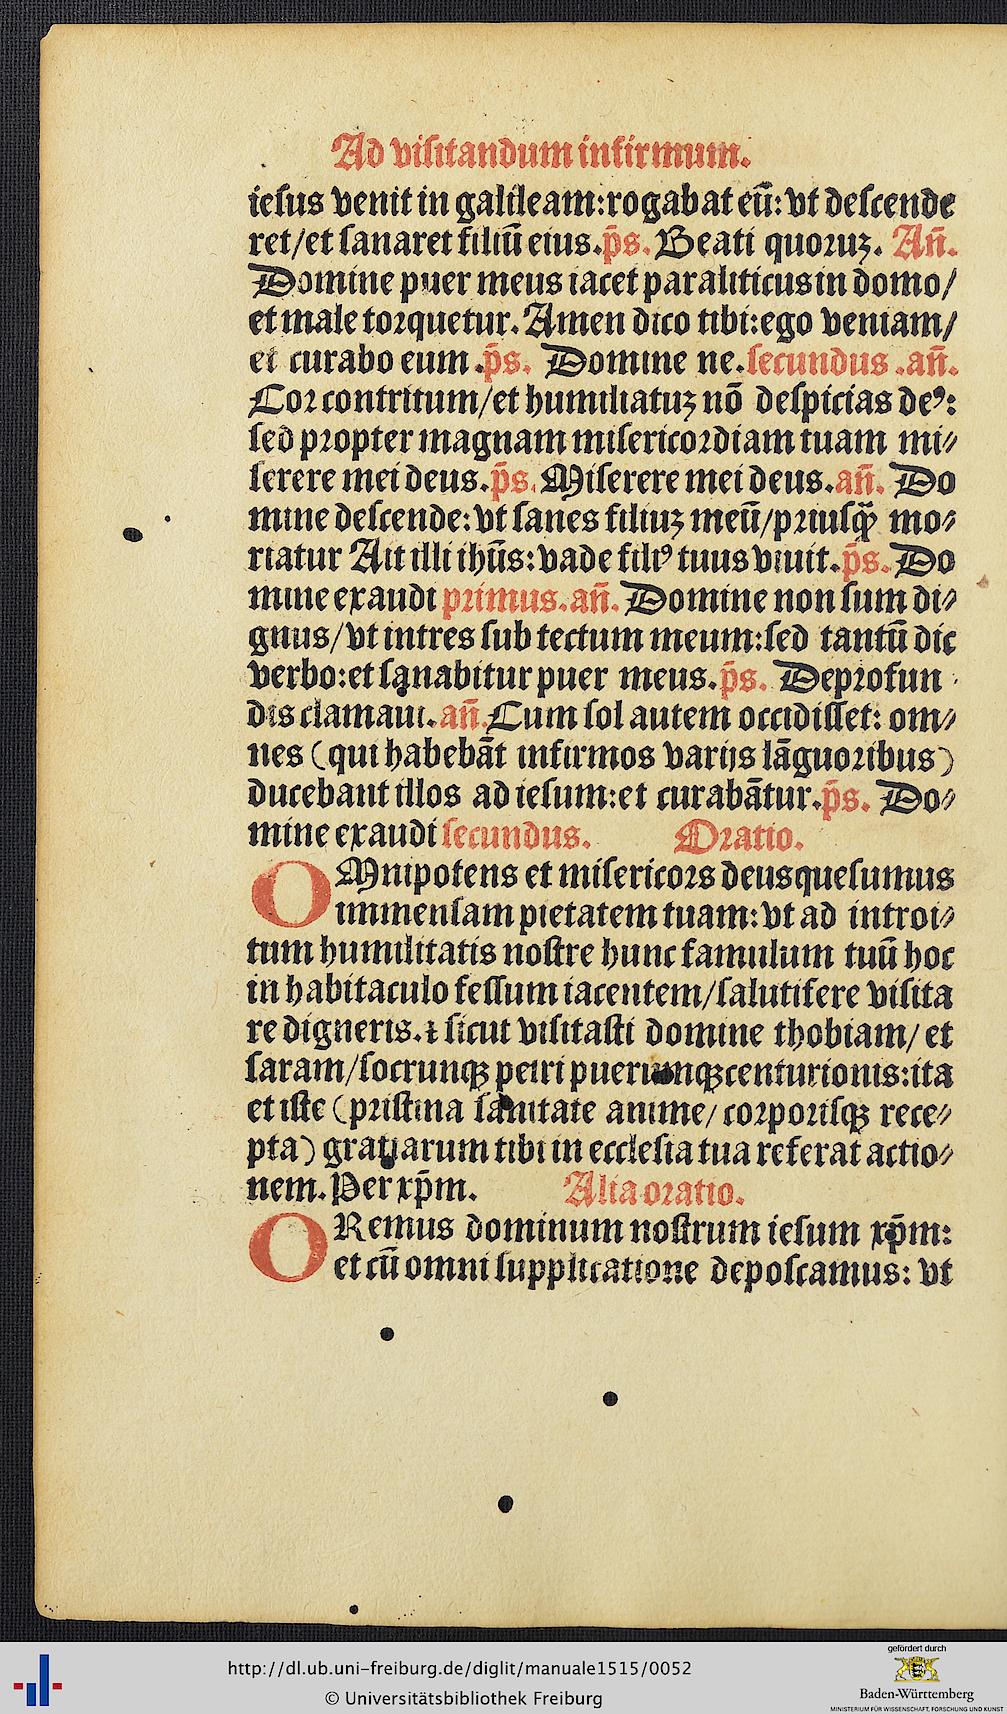 Ad visitandum infirmum.
iesus venit in galileam:rogabat eū:vt descende
ret/et sanaret filiū eius.p̄s. Beati quoruꝫ. An̄.
Domine puer meus iacet paraliticus in domo/
et male torquetur. Amen dico tibi:ego veniam/
et curabo eum.p̄s. Domine ne.secundus.an̄.
Cor contritum/et humiliatuꝫ nō despicias deꝰ:
sed propter magnam misericordiam tuam mi⸗
serere mei deus.p̄s. Miserere mei deus.an̄. Do
mine descende:vt sanes filiuꝫ meū/priusꝙ̄ mo⸗
riatur Ait illi ihūs:vade filiꝰ tuus viuit.p̄s. Do
mine exaudi primus.an̄. Domine non sum di⸗
gnus/vt intres sub tectum meum:sed tantū dic
verbo:et sanabitur puer meus.p̄s. Deprofun
dis clamaui.an̄. Cum sol autem occidisset: om⸗
nes (qui habebāt infirmos varijs lāguoribus)
ducebant illos ad iesum:et curabātur.p̄s. Do⸗
mine exaudi secundus. Oratio.
OMnipotens et misericors deus quesumus
immensam pietatem tuam:vt ad introi⸗
tum humilitatis nostre hunc famulum tuū hoc
in habitaculo fessum iacentem/salutifere visita
re digneris.⁊ sicut visitasti domine thobiam/et
saram/socrunqꝫ petri puerumqꝫ centurionis:ita
et iste (pristina sanitate anime/corporisqꝫ rece⸗
pta) gratiarum tibi in ecclesia tua referat actio⸗
nem. Per xp̄m. Alia oratio.
ORemus dominum nostrum iesum xp̄m:
et cū omni supplicatione deposcamus: vt
http://dl.ub.uni-freiburg.de/diglit/manuale1515/0052
© Universitätsbibliothek Freiburg
gefördert durch
Baden-Württemberg
MINISTERIUM FÜR WISSENSCHAFT, FORSCHUNG UND KUNST